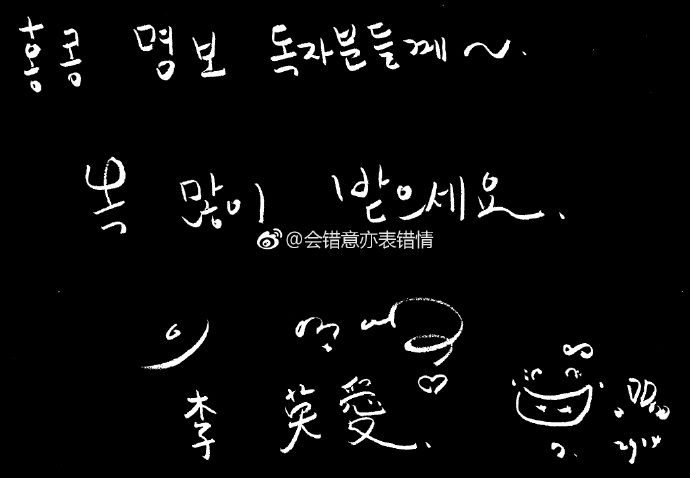 홍콩 명보 독자분들께~.
복 많이 받으세요.
@会错意亦表错情
이 영애
李 英愛.